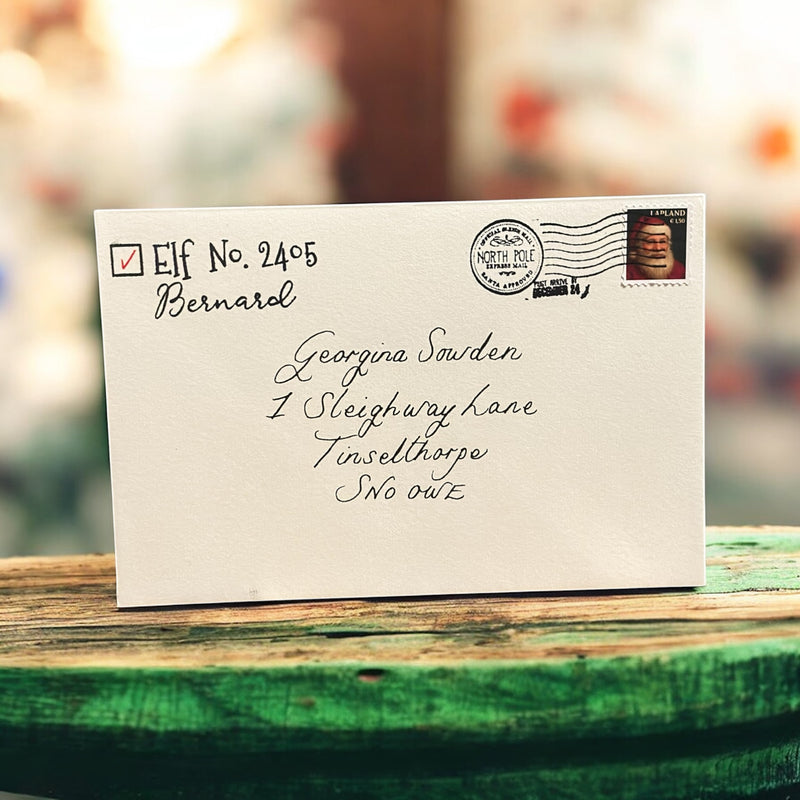 Elf No. 2405
Bernard
OFFICIAL SLEIGH MAIL
NORTH POLE
EXPRESS MAIL
SANTA APPROVED
MUST ARRIVE BY
DECEMBER 24
LAPLAND
€1,50
Georgina Sowden
1 Sleighway Lane
Tinselthorpe
SNO OWE